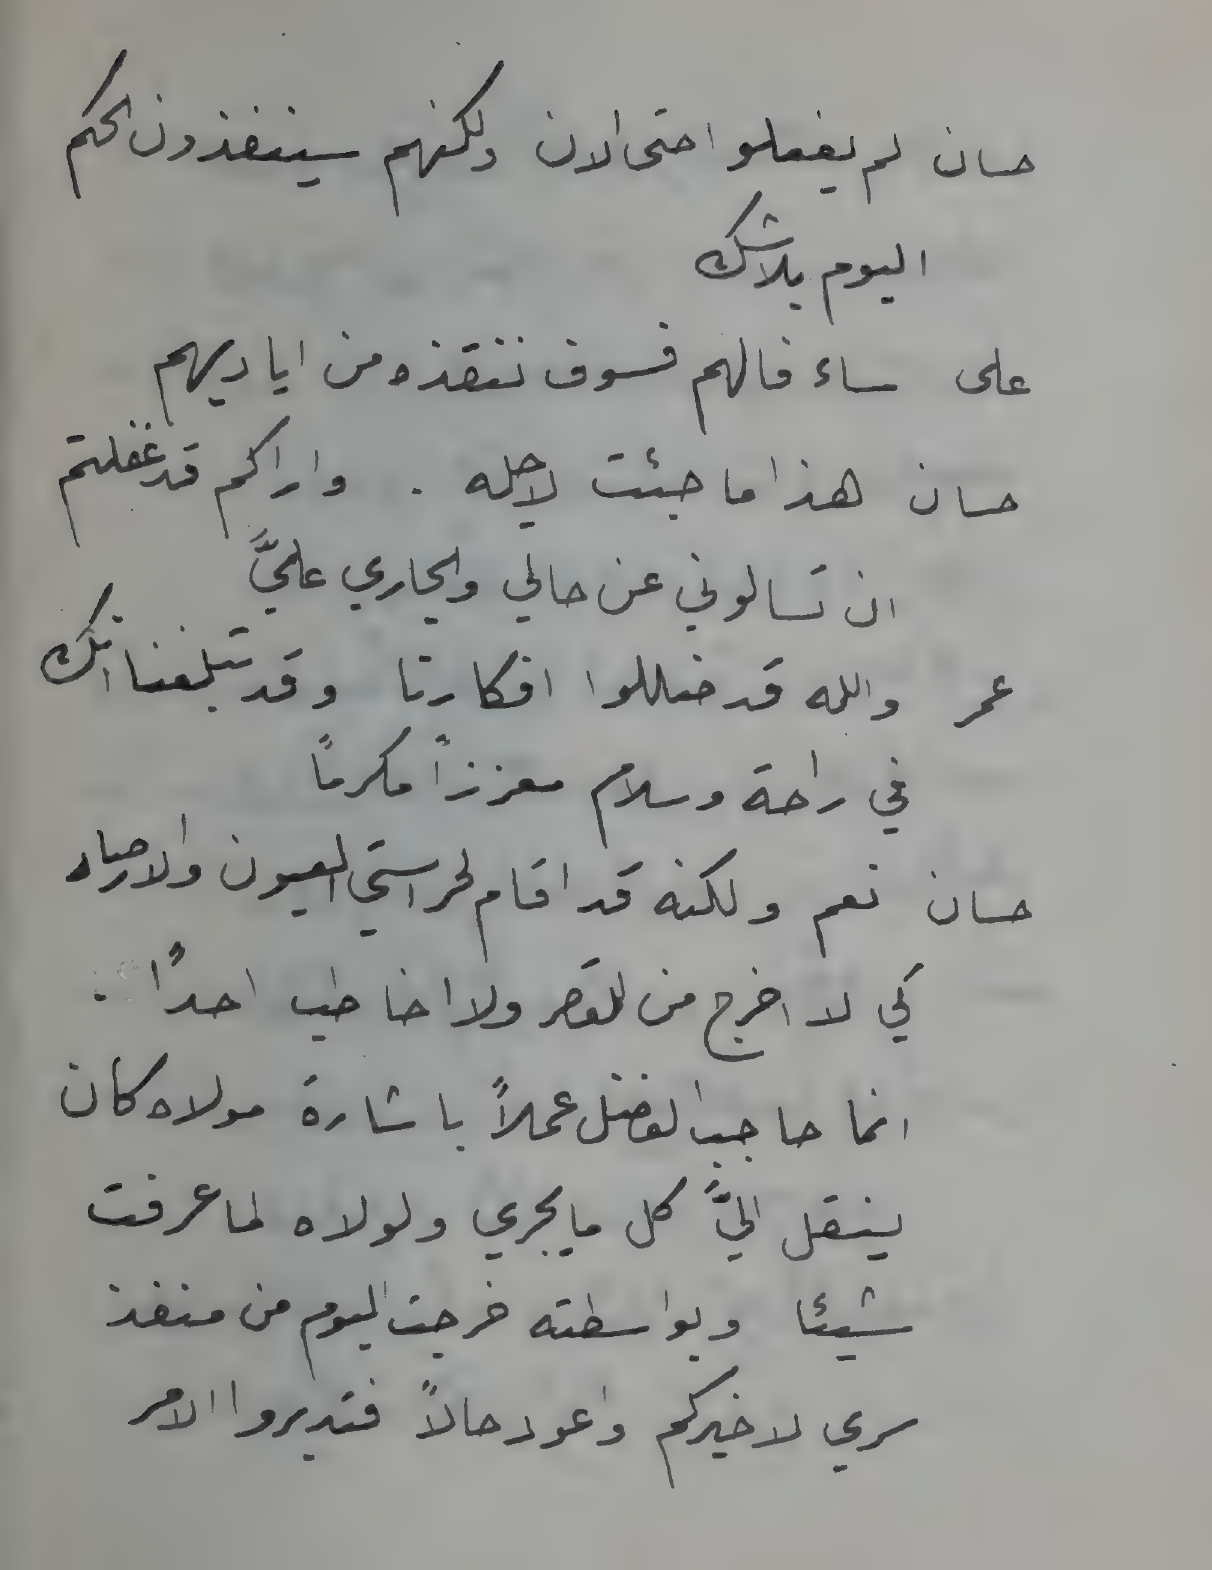 حسان لم يفعلوا حتى الان ولكنهم سينفذون الحكم
اليوم بلاشك
على ساء فالهم فسوف ننقذه من اياديهم
حسان هذا ما جئت لاجله . واراكم قد غفلتم
ان تسالوني عن حالي والجاري عليَّ
عمر والله قد ضللوا افكارنا وقد تبلغنا انك
في راحة وسلام معززاً مكرماً
حسان نعم ولكنه قد اقام لحراستي العيون والارصاد
كي لا اخرج من القصر ولا اخاطب احداً .
انما حاجب الفضل عملاً باشارة مولاه كان
ينقل اليَّ كل ما يجري ولولاه لما عرفت
شيئا وبواسطته خرجت اليوم من منفذ
سري لاخبركم واعود حالاً فتدبروا الامر